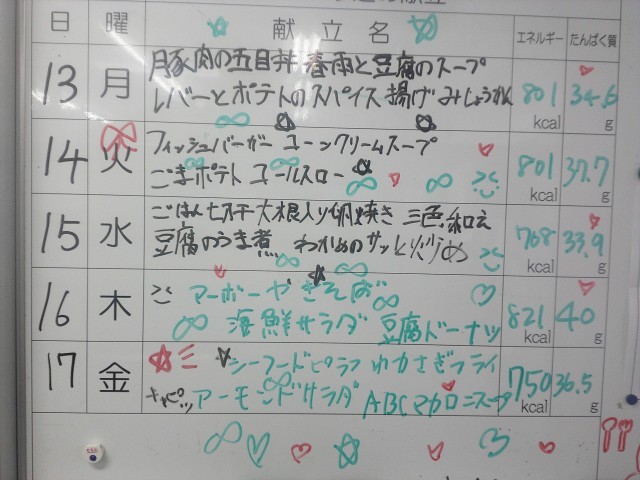 日 曜 献立名 エネルギー たんぱく質
13 月 豚肉の五目丼 春雨と豆腐のスープ
レバーとポテトのスパイス揚げ みしょうかん 801 kcal 34.6 g
14 火 フィッシュバーガー コーンクリームスープ
ごまポテト コールスロー 801 kcal 37.7 g
15 水 ごはん 七夕汁 大根入り卵焼き 三色和え
豆腐のうま煮 わかめのサッと炒め 768 kcal 33.9 g
16 木 マーボーやきそば
海鮮サラダ 豆腐ドーナツ 821 kcal 40 g
17 金 シーフードピラフ わかさぎフライ
キャピッ アーモンドサラダ ABCマカロニスープ 750 kcal 36.5 g